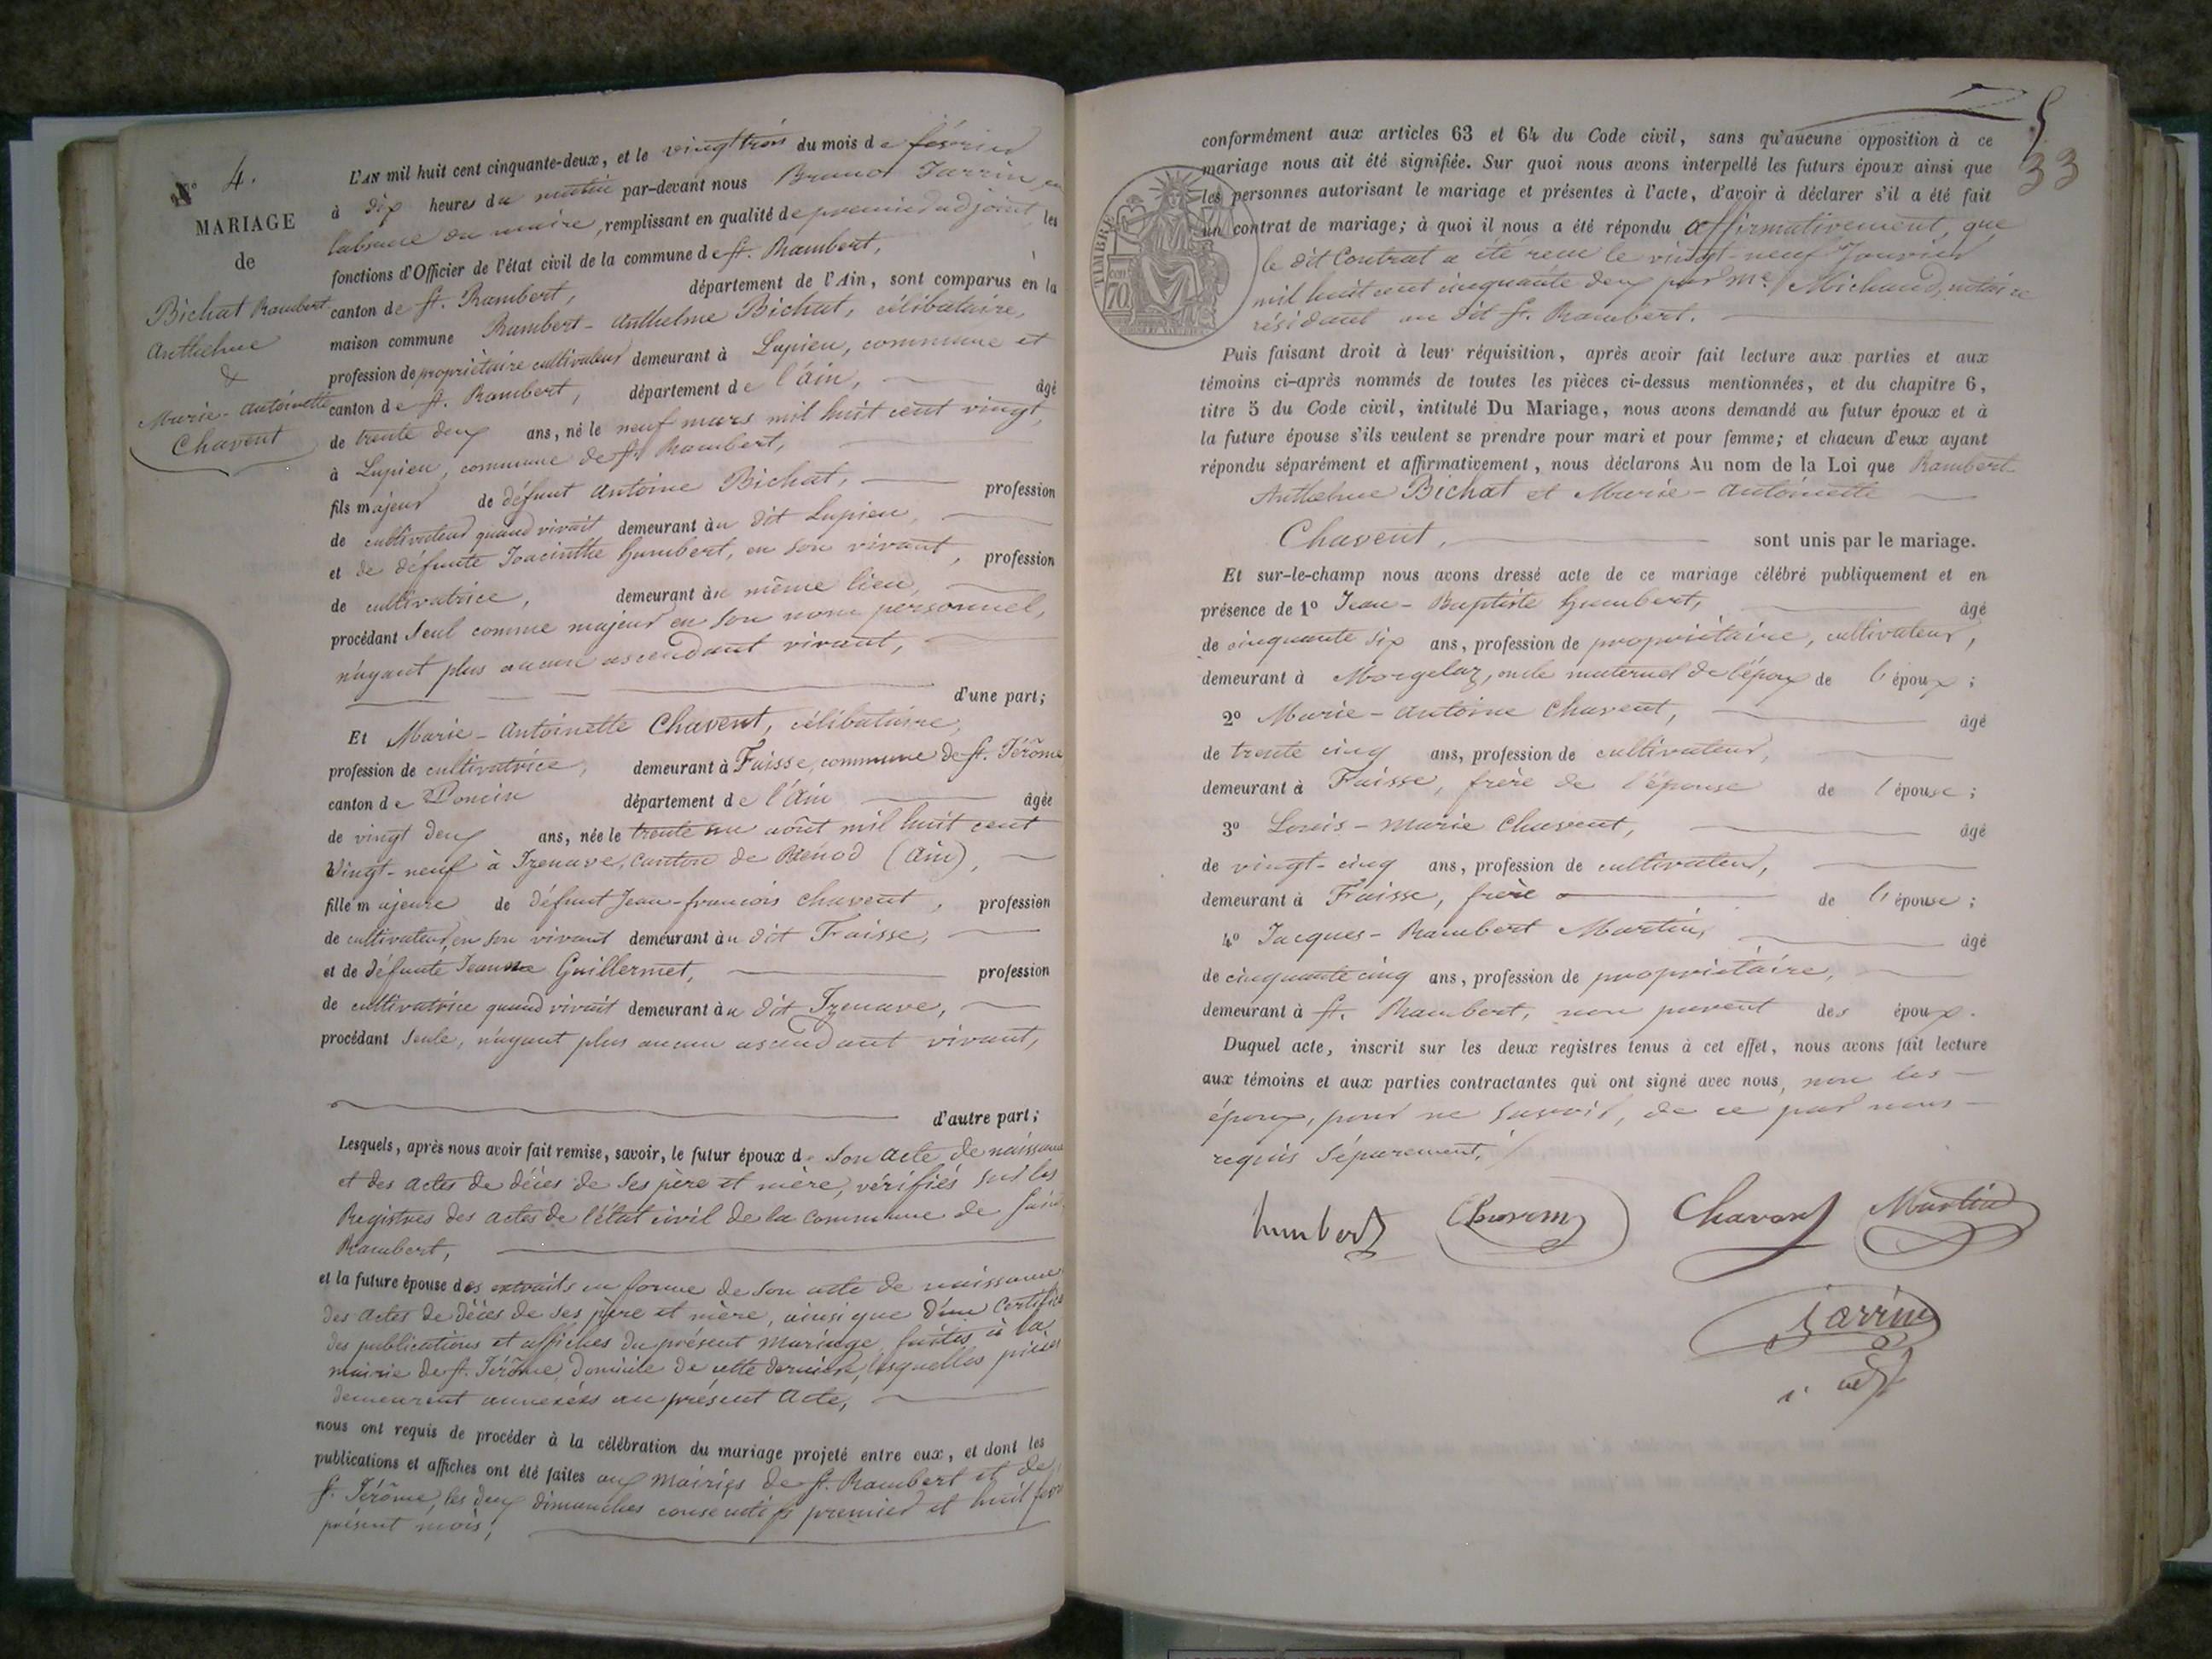 N° 4.
MARIAGE
de
Bichat Rambert
Anthelme
&
Marie-Antoinette
Chavent
L'AN mil huit cent cinquante-deux, et le vingt trois du mois de février
à dix heures du matin par-devant nous Bruno Jarrin, en
l'absence du maire, remplissant en qualité de premier adjoint les
fonctions d'Officier de l'état civil de la commune de St. Rambert,
canton de St. Rambert, département de l'Ain, sont comparus en la
maison commune Rambert-Anthelme Bichat, célibataire,
profession de propriétaire cultivateur demeurant à Lupieu, commune et
canton de St. Rambert, département de l'Ain, âgé
de trente deux ans, né le neuf mars mil huit cent vingt,
à Lupieu, commune de St. Rambert,
fils majeur de défunt Antoine Bichat, profession
de cultivateur quand vivait demeurant au dit Lupieu,
et de défunte Joacinthe humbert, en son vivant, profession
de cultivatrice, demeurant au même lieu,
procédant seul comme majeur en son nom personnel,
n'ayant plus aucun ascendant vivant,
d'une part;
Et Marie-Antoinette Chavent, célibataire,
profession de cultivatrice, demeurant à Fraisse, commune de St. Jérôme
canton de Poncin département de l'Ain âgée
de vingt deux ans, née le trente un août mil huit cent
Vingt-neuf à Izenave, canton de Brénod (Ain),
fille majeure de défunt Jean-francois Chavent, profession
de cultivateur, en son vivant demeurant au dit Fraisse,
et de défunte Jeanne Guillermet, profession
de cultivatrice quand vivait demeurant au dit Izenave,
procédant seule, n'ayant plus aucun ascendant vivant,
d'autre part;
Lesquels, après nous avoir fait remise, savoir, le futur époux de son acte de naissance
et des actes de décès de ses père et mère, vérifiés sur les
Registres des actes de l'état civil de la commune de Saint
Rambert,
et la future épouse des extraits en forme de son acte de naissance
des actes de décès de ses père et mère, ainsi que d'un Certificat
des publications et affiches du présent mariage faites à la
mairie de St. Jérôme, domicile de cette dernière, lesquelles pièces
demeurent annexées au présent acte,
nous ont requis de procéder à la célébration du mariage projeté entre eux, et dont les
publications et affiches ont été faites aux mairies de St. Rambert et de
St. Jérôme, les deux dimanches consécutifs premier et huit
présent mois,
5
33
TIMBRE
70
conformément aux articles 63 et 64 du Code civil, sans qu'aucune opposition à ce
mariage nous ait été signifiée. Sur quoi nous avons interpellé les futurs époux ainsi que
les personnes autorisant le mariage et présentes à l'acte, d'avoir à déclarer s'il a été fait
un contrat de mariage; à quoi il nous a été répondu affirmativement, que
le dit Contrat a été recu le vingt-neuf Janvier
mil huit cent cinquante deux par Me. Michaud, notaire
résidant au dit St. Rambert.
Puis faisant droit à leur réquisition, après avoir fait lecture aux parties et aux
témoins ci-après nommés de toutes les pièces ci-dessus mentionnées, et du chapitre 6,
titre 5 du Code civil, intitulé Du Mariage, nous avons demandé au futur époux et à
la future épouse s'ils veulent se prendre pour mari et pour femme; et chacun d'eux ayant
répondu séparément et affirmativement, nous déclarons Au nom de la Loi que Rambert
Anthelme Bichat et Marie-Antoinette
Chavent, sont unis par le mariage.
Et sur-le-champ nous avons dressé acte de ce mariage célébré publiquement et en
présence de 1° Jean-Baptiste humbert, âgé
de cinquante six ans, profession de propriétaire, cultivateur,
demeurant à Morgelaz, oncle maternel de l'époux de l'époux;
2° Marie-Antoine Chavent, âgé
de trente cinq ans, profession de cultivateur,
demeurant à Fraisse, frère de l'épouse de l'épouse;
3° Louis-Marie Chavent, âgé
de vingt-cinq ans, profession de cultivateur,
demeurant à Fraisse, frère de l'épouse;
4° Jacques-Rambert Martin, âgé
de cinquante cinq ans, profession de propriétaire,
demeurant à St. Rambert, non parent des époux.
Duquel acte, inscrit sur les deux registres tenus à cet effet, nous avons fait lecture
aux témoins et aux parties contractantes qui ont signé avec nous, non les
époux, pour ne savoir, de ce par nous
requis séparement.
humbert Chavent Chavent Martin
Jarrin
adj